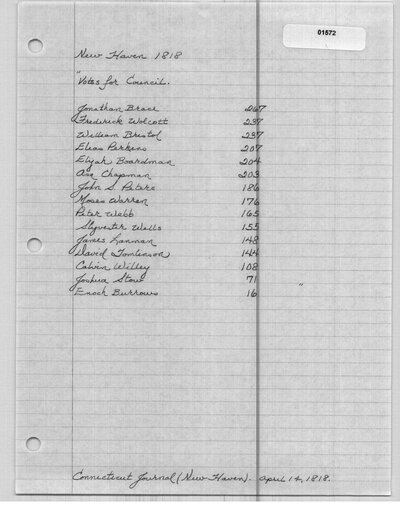 01572
New Haven 1818
"Votes for Council.
Jonathan Brace 267
Frederick Wolcott 237
William Bristol 237
Elias Perkins 207
Elijah Boardman 204
Asa Chapman 203
John S. Peters 186
Moses Warren 176
Peter Webb 165
Sylvester Wells 155
James Lanman 148
David Tomlinson 144
Calvin Willey 108
Joshua Stow 71 "
Enoch Burrows 16
Connecticut Journal (New Haven). April 14, 1818.